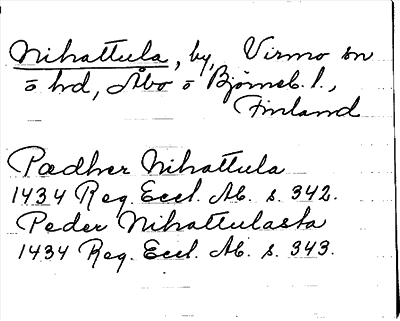 Nihattula, by, Virmo sn
o hd, Åbo o Björneb. l.,
Finland
Pædher Nihattula
1434 Reg. Eccl. Ab. s. 342.
Peder Nihattulasta
1434 Reg. Eccl. Ab. s. 343.